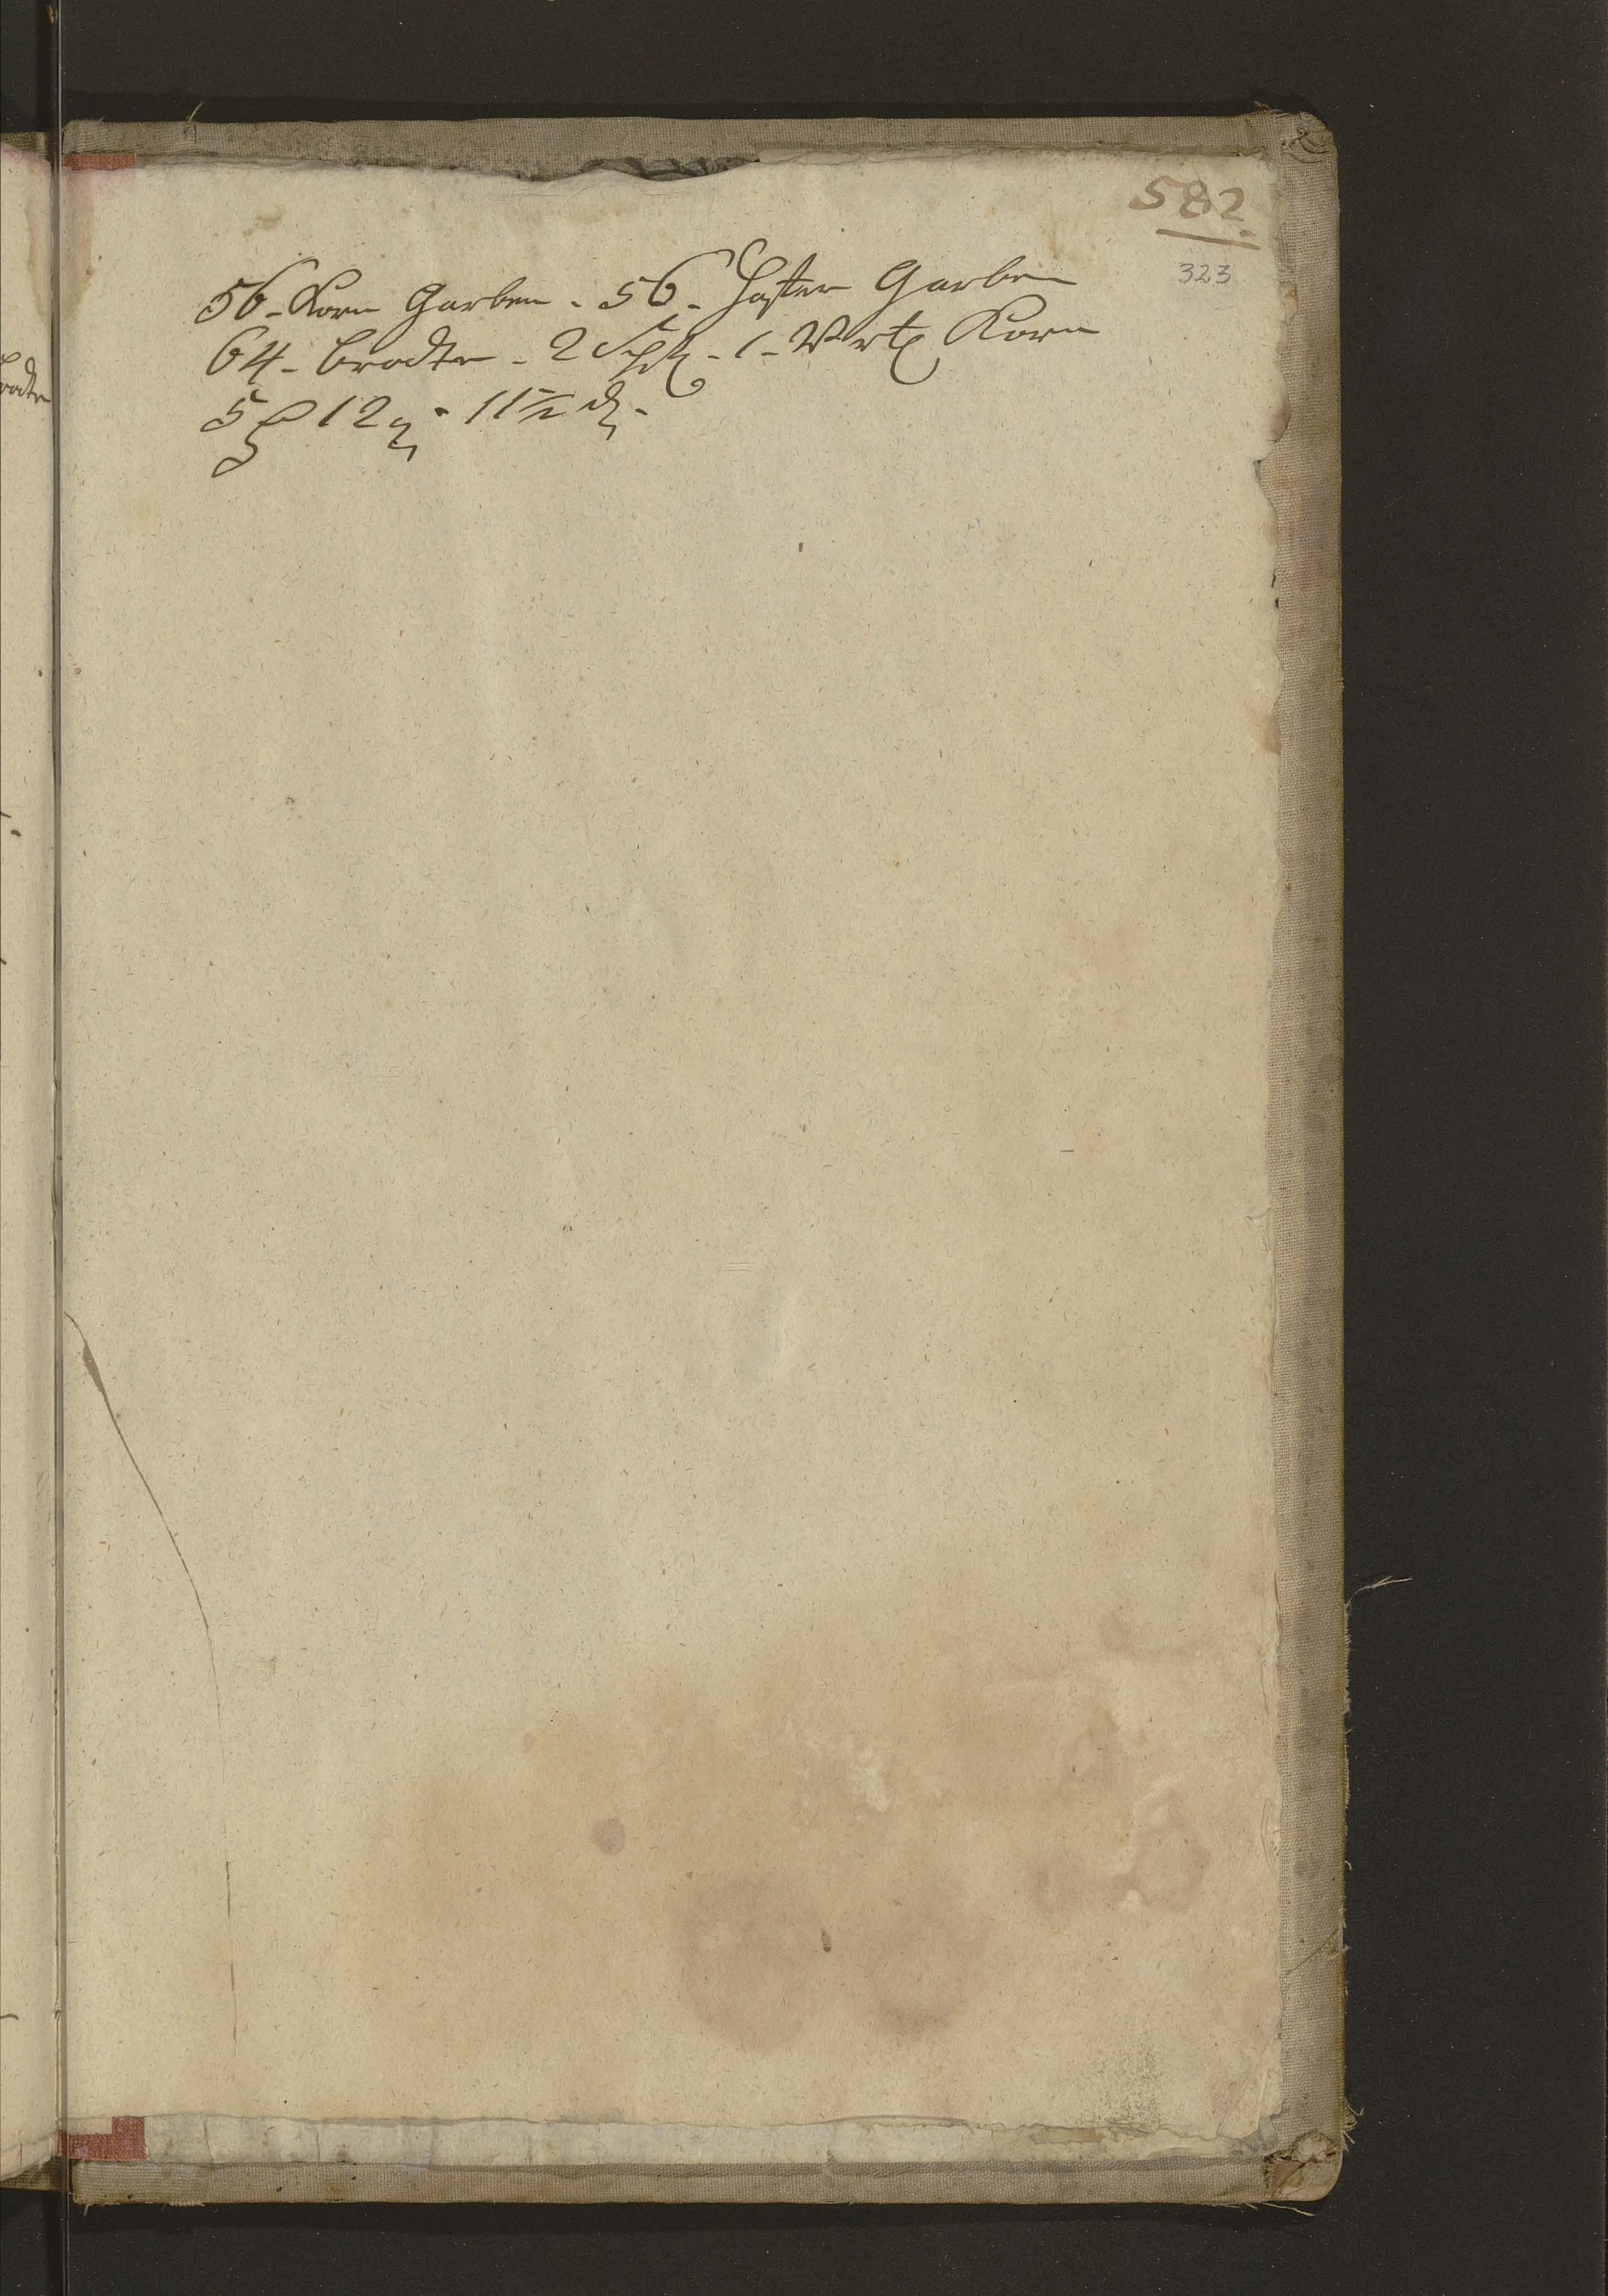 582
323
56 - Korn Garben - 56 - Hafer Garben
64 - brodte - 2 Schfl - 1 - Vrtl Korn
5 fl 12 g - 11 1/2 d -